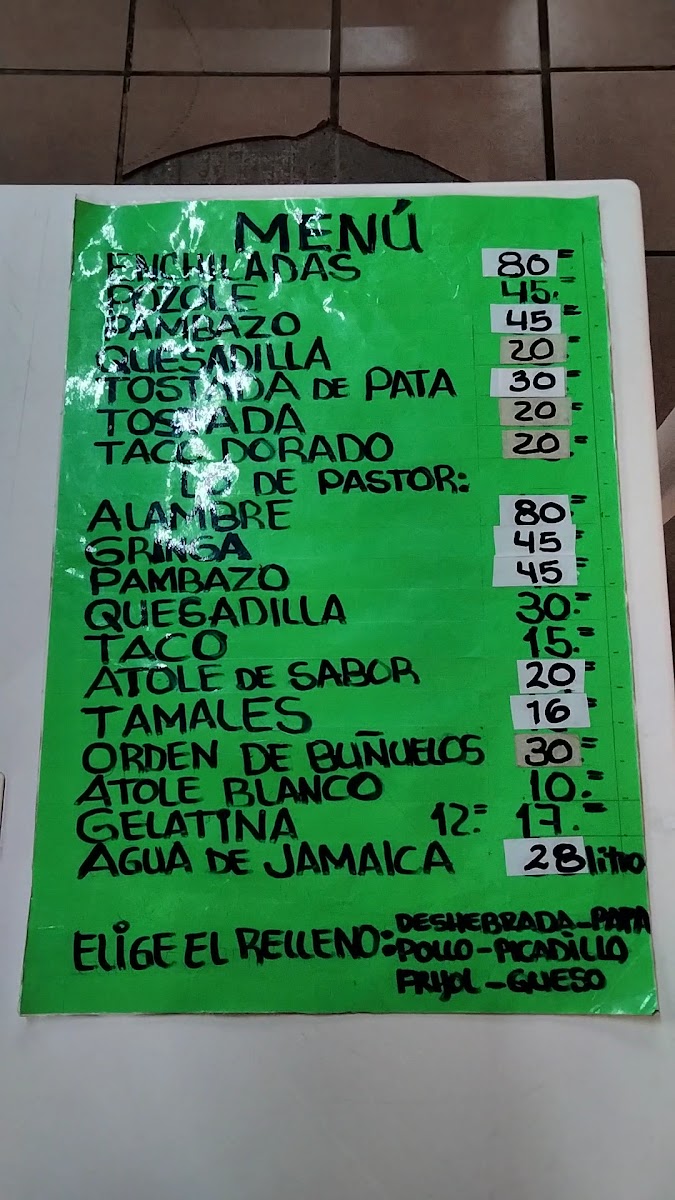 MENÚ
ENCHILADAS 80=
POZOLE 45.=
PAMBAZO 45=
QUESADILLA 20=
TOSTADA DE PATA 30=
TOSTADA 20=
TACO DORADO 20.=
LO DE PASTOR:
ALAMBRE 80=
GRINGA 45=
PAMBAZO 45
QUESADILLA 30.=
TACO 15.=
ATOLE DE SABOR 20=
TAMALES 16=
ORDEN DE BUÑUELOS 30=
ATOLE BLANCO 10.=
GELATINA 12.= 17.=
AGUA DE JAMAICA 28 litro
ELIGE EL RELLENO: DESHEBRADA-PAPA
POLLO-PICADILLO
FRIJOL-QUESO